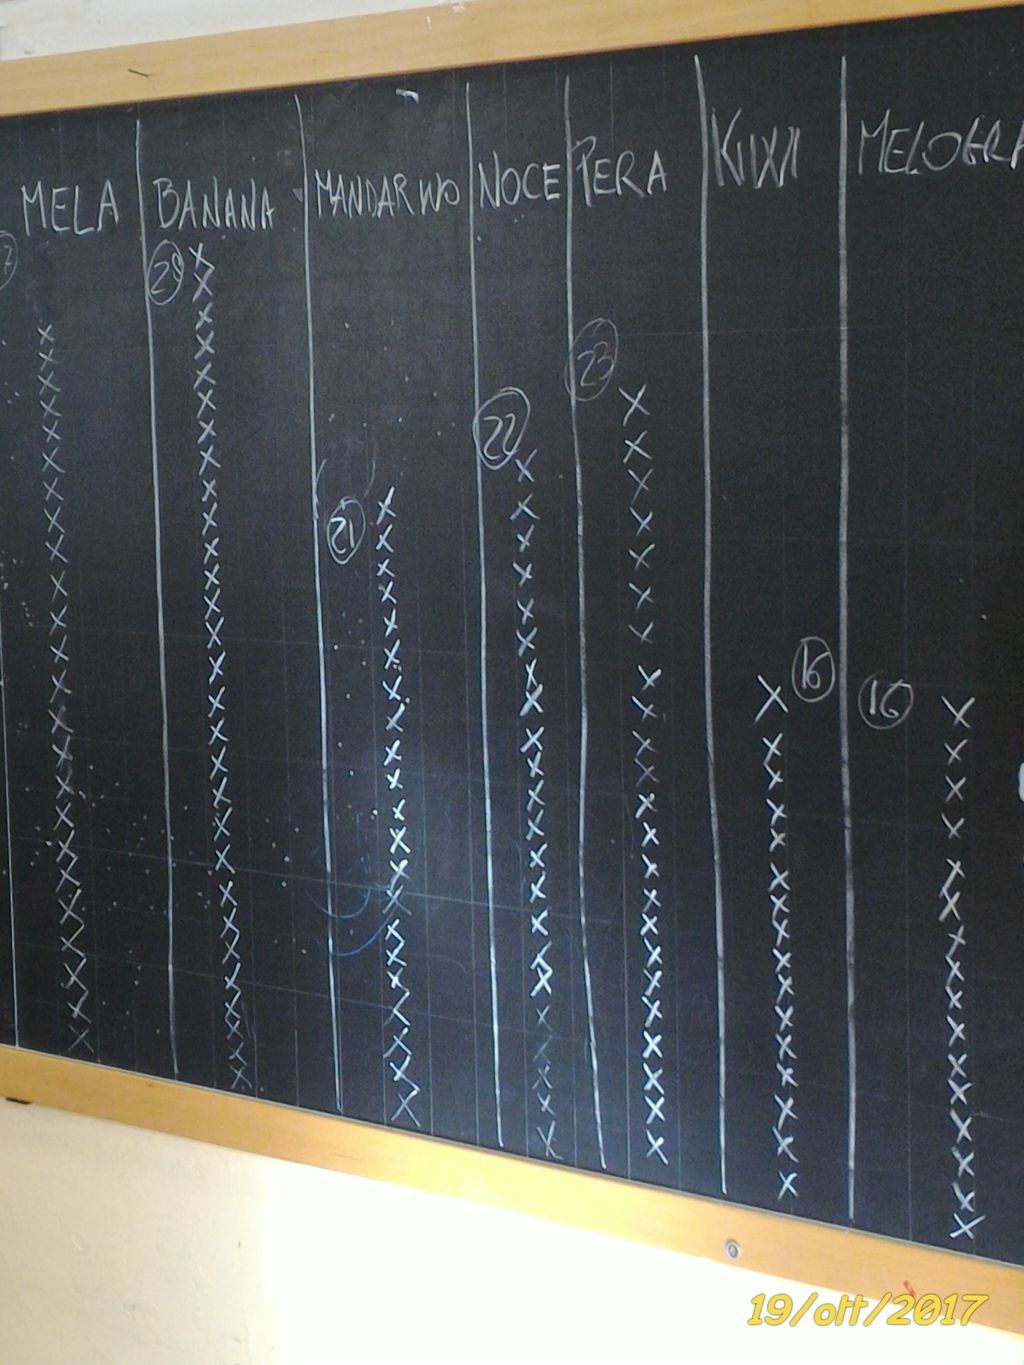 MELA BANANA MANDARINO NOCE PERA KIWI MELOGRA
7 29 21 22 23 16 16
19/ott/2017